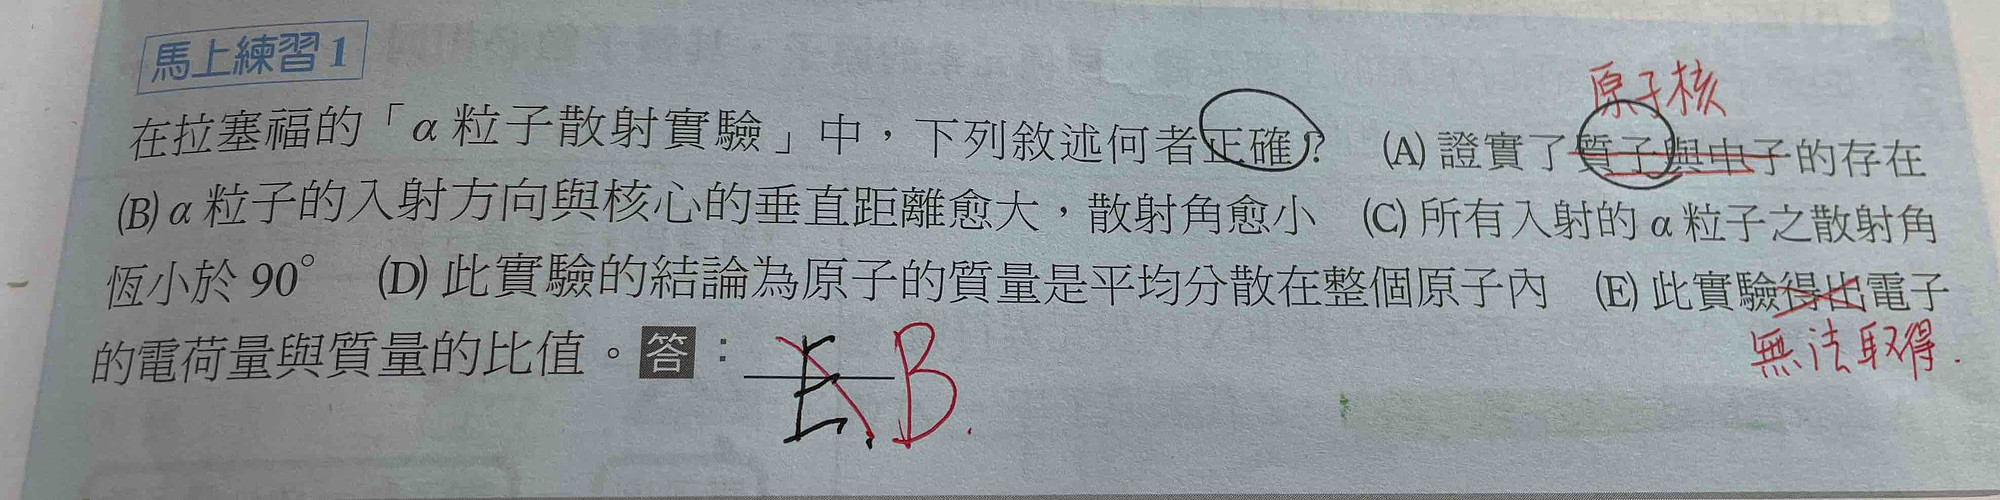 馬上練習1
原子核
在拉塞福的「α粒子散射實驗」中，下列敘述何者正確？ (A) 證實了質子與中子的存在
(B) α粒子的入射方向與核心的垂直距離愈大，散射角愈小 (C) 所有入射的α粒子之散射角
恆小於90° (D) 此實驗的結論為原子的質量是平均分散在整個原子內 (E) 此實驗得出電子
的電荷量與質量的比值。答：E. B.
無法取得.